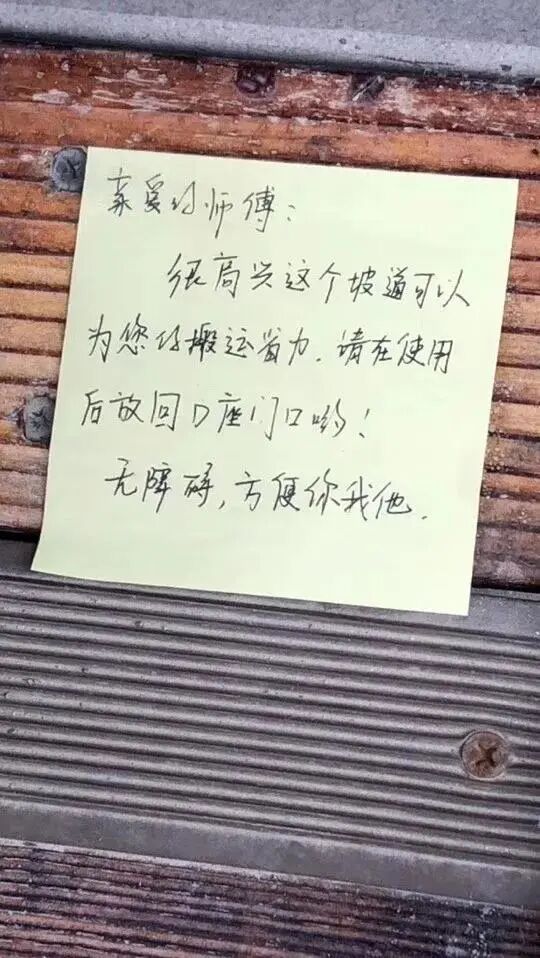 亲爱的师傅：
很高兴这个坡道可以
为您的搬运省力．请在使用
后放回D座门口哟！
无障碍，方便你我他．